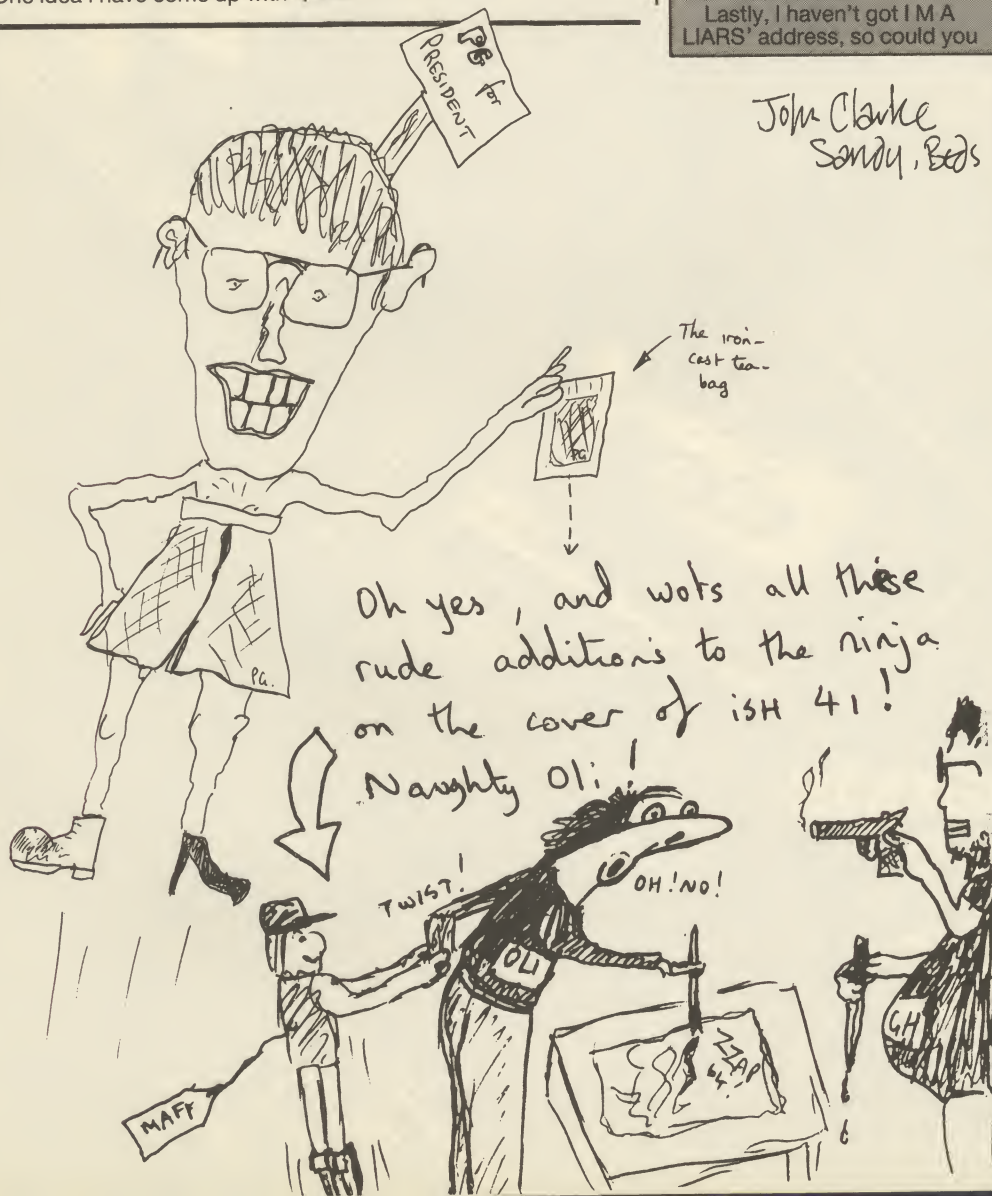 One idea I have come up with
Lastly, I haven't got I M A
LIARS' address, so could you
PG for
PRESIDENT
John Clarke
Sandy, Beds
The iron-
cast tea-
bag
PG
P.G.
Oh yes, and wots all these
rude additions to the ninja
on the cover of ISH 41!
Naughty Oli!
TWIST!
OH! NO!
OLI
ZZAP
64
GH
MAFF